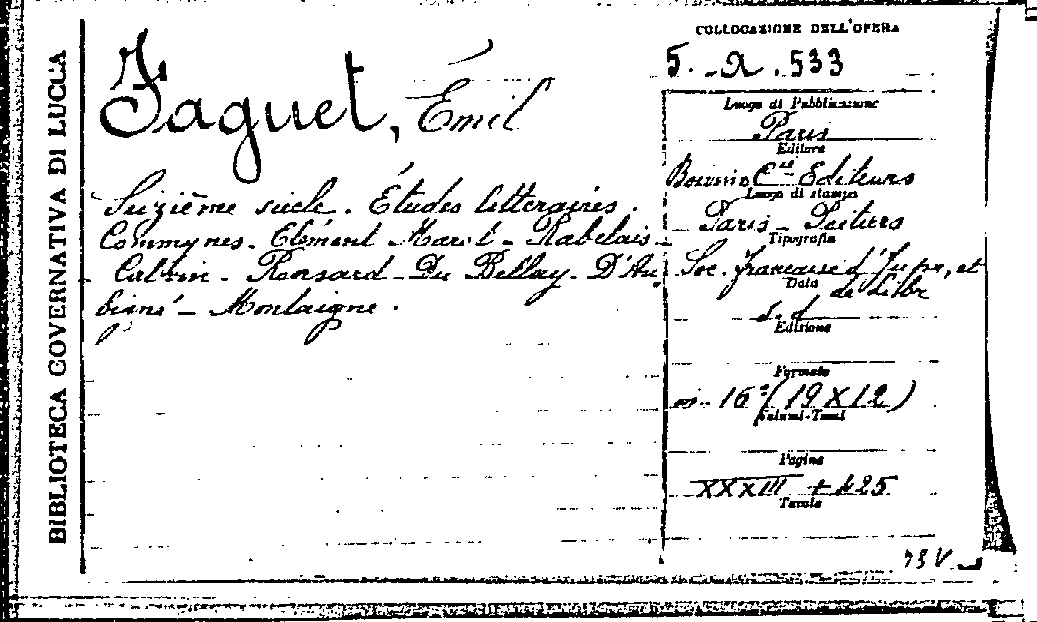 BIBLIOTECA GOVERNATIVA DI LUCCA
Faguet, Émil
Seizième siècle. Études littéraires.
Commynes - Clément Marot - Rabelais -
Calvin - Ronsard - Du Bellay - D'Au
bigné - Montaigne.
COLLOCAZIONE DELL'OPERA
5. - A . 533
Luogo di Pubblicazione
Paris
Editore
Boivin C.ie Editeurs
Luogo di stampa
Paris - Poitiers
Tipografia
Soc. française d'Impr, et
de Libr
Data
s. d
Edizione
Formato
in- 16° (19 X 12)
Volumi-Tomi
Pagine
XXXIII + 425
Tavole